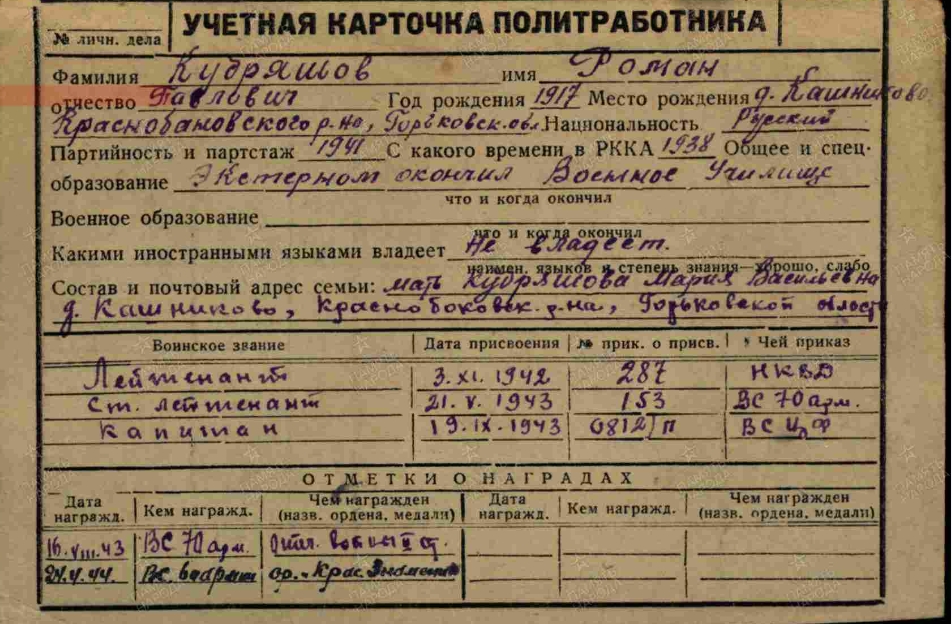 УЧЕТНАЯ КАРТОЧКА ПОЛИТРАБОТНИКА
№ личн. дела
Фамилия Кудряшов имя Роман
отчество Павлович Год рождения 1917 Место рождения д. Кашниково
Краснобаковского р-на, Горьковск. обл. Национальность Русский
Партийность и партстаж 1941 С какого времени в РККА 1938 Общее и спец-
образование Экстерном окончил Военное Училище
что и когда окончил
Военное образование
что и когда окончил
Какими иностранными языками владеет Не владеет.
наимен. языков и степень знания—хорошо, слабо
Состав и почтовый адрес семьи: мать Кудряшова Мария Васильевна
д. Кашниково, Краснобоковск. р-на, Горьковской области
Воинское звание Дата присвоения № прик. о присв. Чей приказ
Лейтенант 3.XI.1942 287 НКВД
Ст. лейтенант 21.V.1943 153 ВС 70 арм.
Капитан 19.IX.1943 0812/п ВС ЦФ
ОТМЕТКИ О НАГРАДАХ
Дата награжд. Кем награжд. Чем награжден (назв. ордена, медали) Дата награжд. Кем награжд. Чем награжден (назв. ордена, медали)
16.VIII.43 ВС 70 арм. Отеч. войны II ст.
44 ВС ор. "Крас. Знамени"